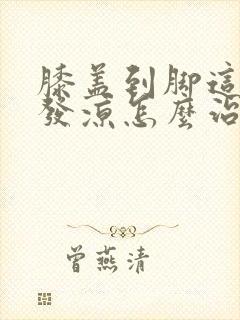 膝盖到脚這
發涼怎麼治
曾燕清